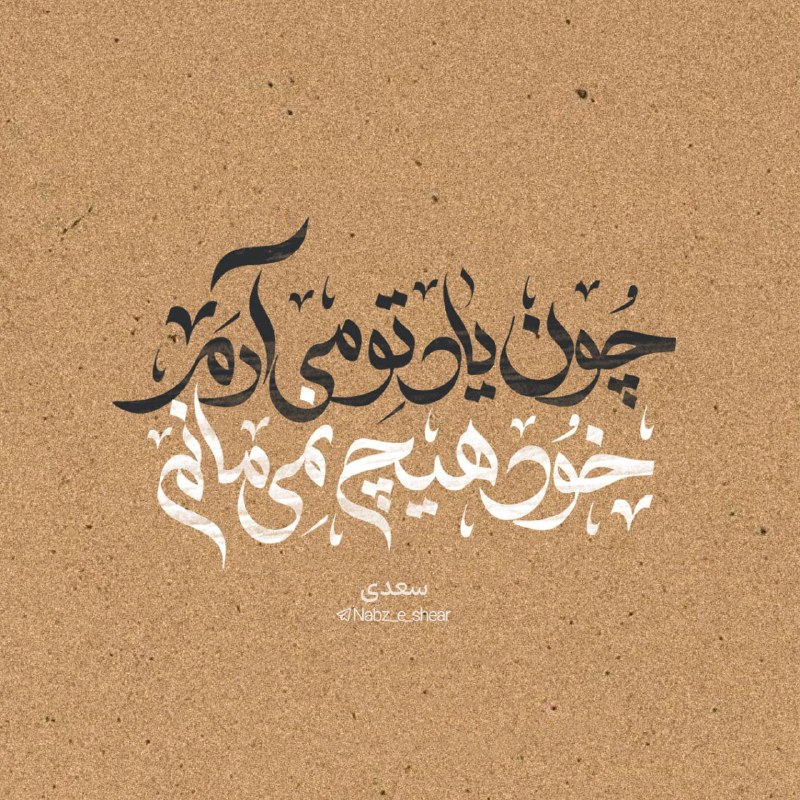 چُون یاد تو می آرم
خُود هیچ نمی مانم
سعدی
Nabz_e_shear